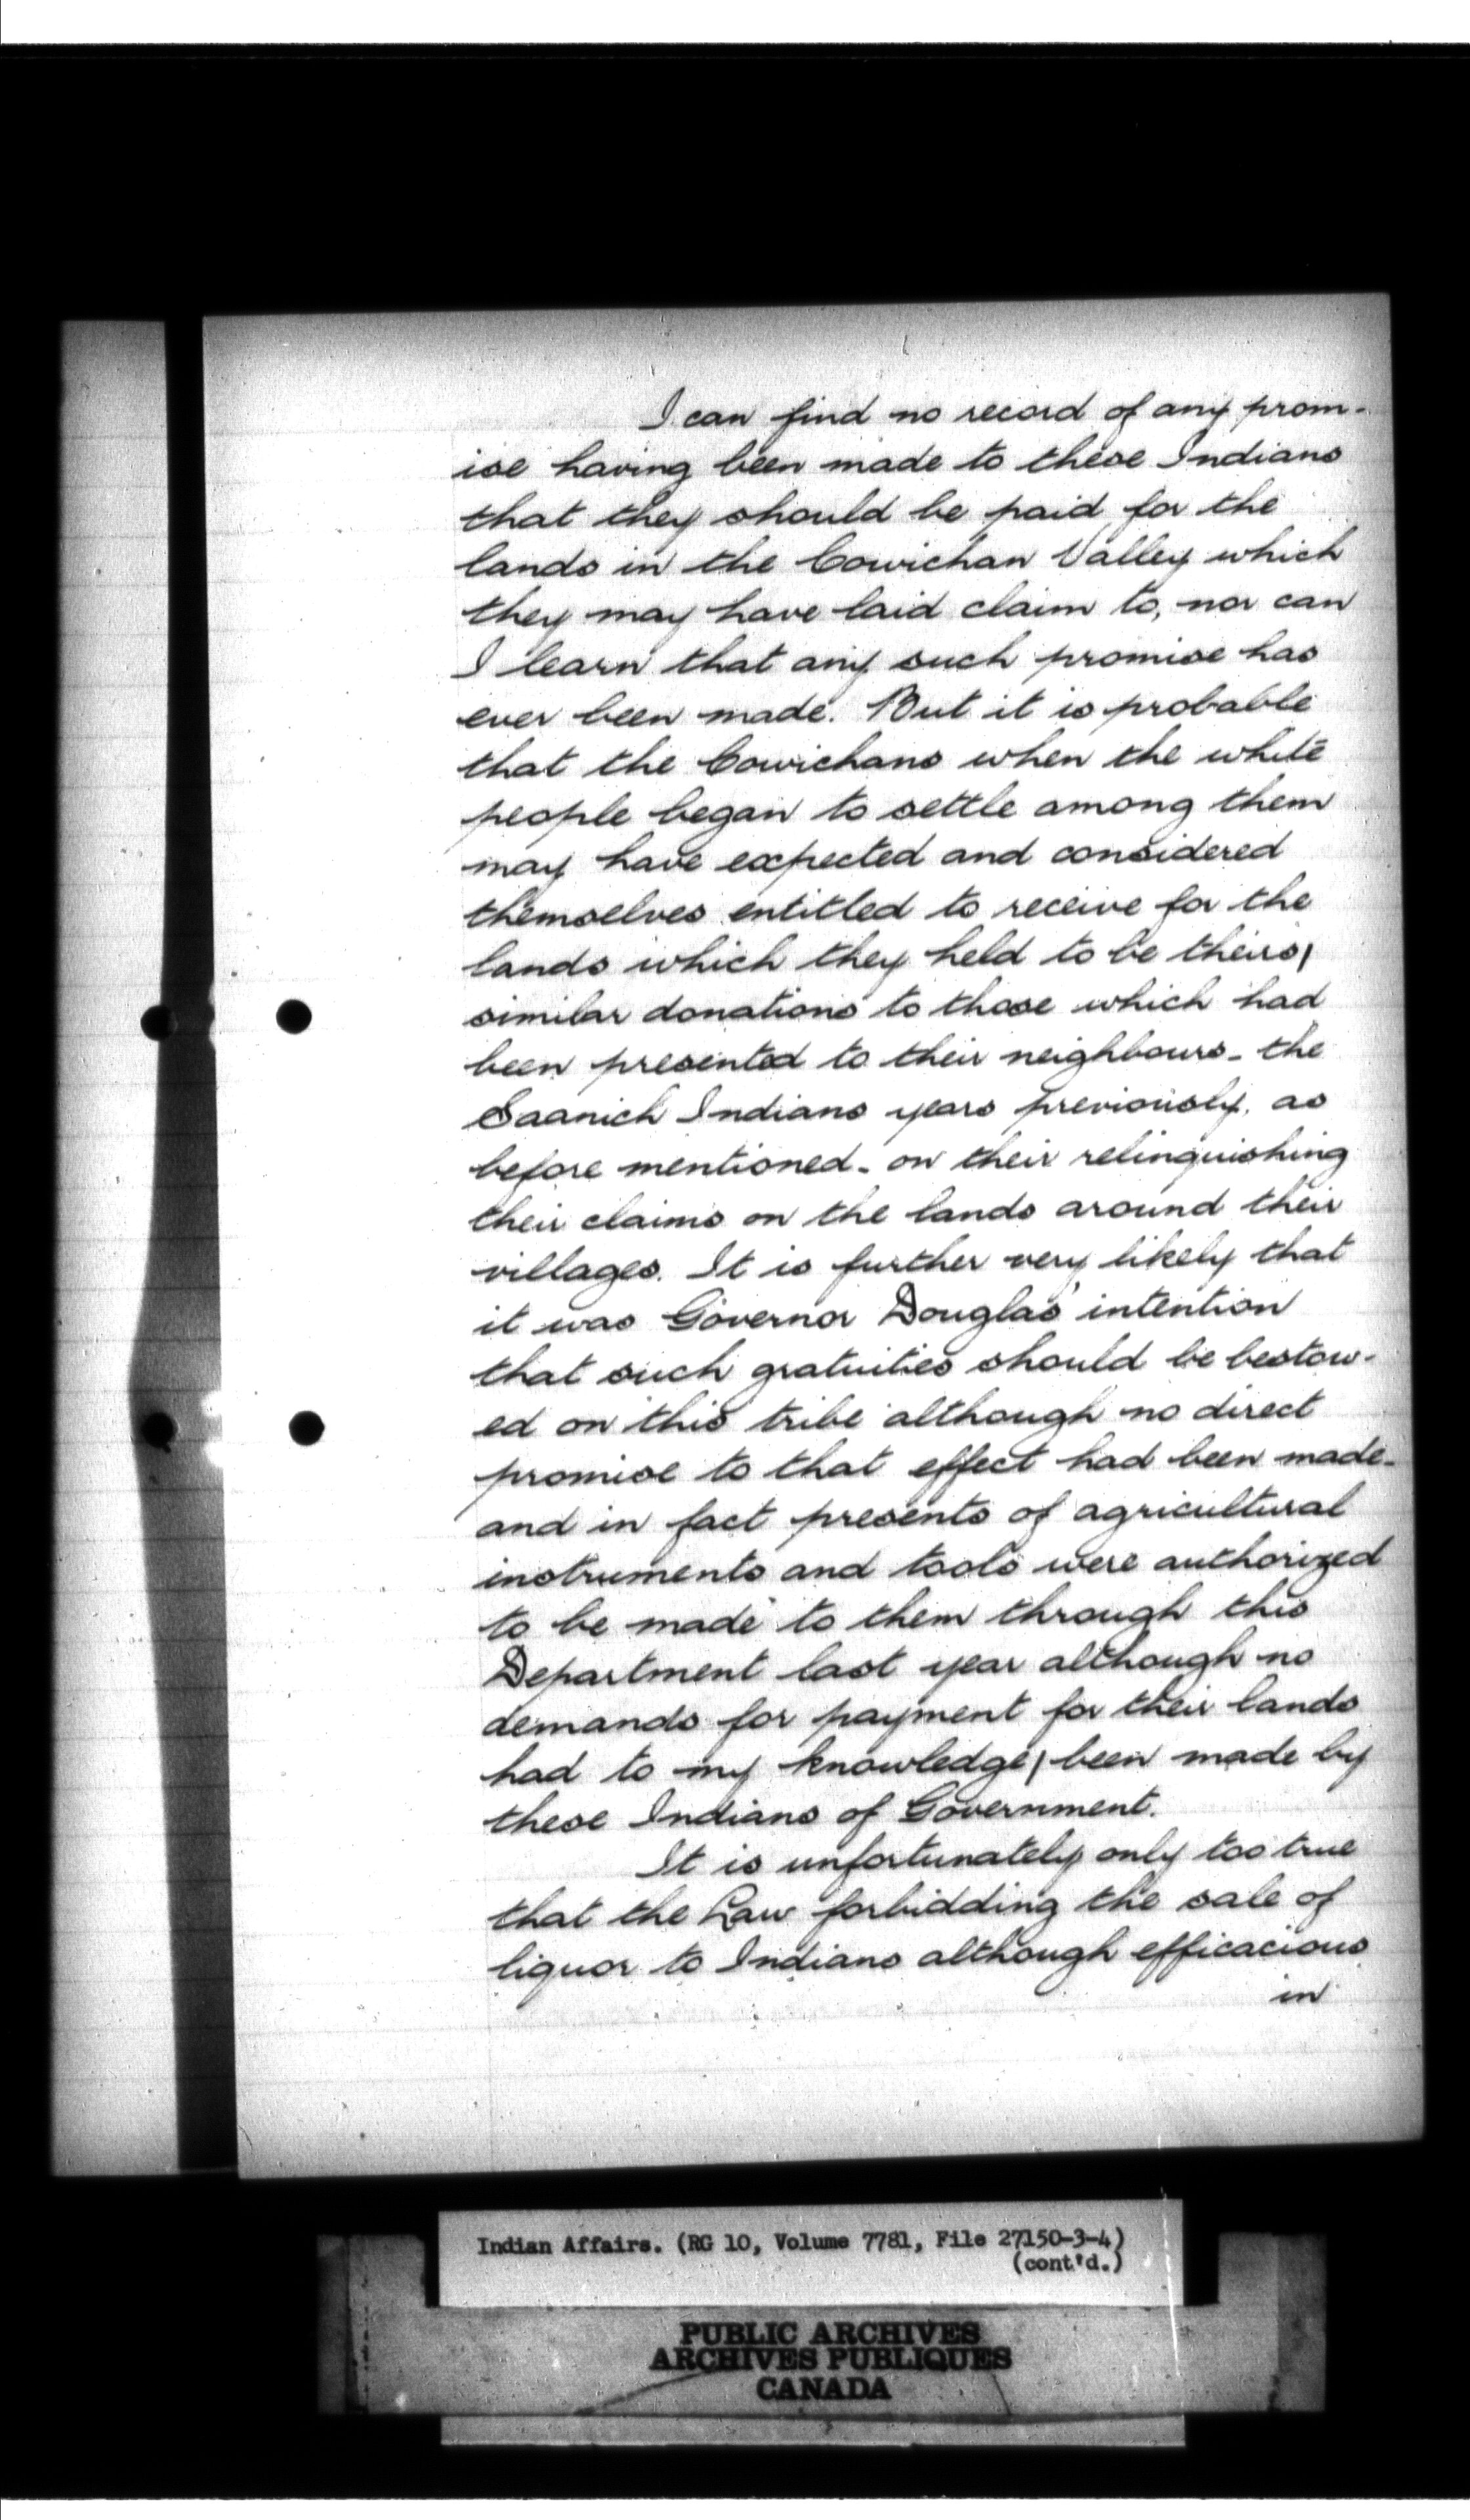 I can find no record of any prom-
ise having been made to these Indians
that they should be paid for the
lands in the Cowichan Valley which
they may have laid claim to, nor can
I learn that any such promise has
ever been made. But it is probable
that the Cowichans when the white
people began to settle among them
may have expected and considered
themselves entitled to receive for the
lands which they held to be theirs,
similar donations to those which had
been presented to their neighbours - the
Saanich Indians years previously, as
before mentioned - on their relinquishing
their claims on the lands around their
villages. It is further very likely that
it was Governor Douglas' intention
that such gratuities should be bestow-
ed on this tribe although no direct
promise to that effect had been made -
and in fact presents of agricultural
instruments and tools were authorized
to be made to them through this
Department last year although no
demands for payment for their lands
had to my knowledge, been made by
these Indians of Government.
It is unfortunately only too true
that the Law forbidding the sale of
liquor to Indians although efficacious
in
Indian Affairs. (RG 10, Volume 7781, File 27150-3-4)
(cont'd.)
PUBLIC ARCHIVES
ARCHIVES PUBLIQUES
CANADA